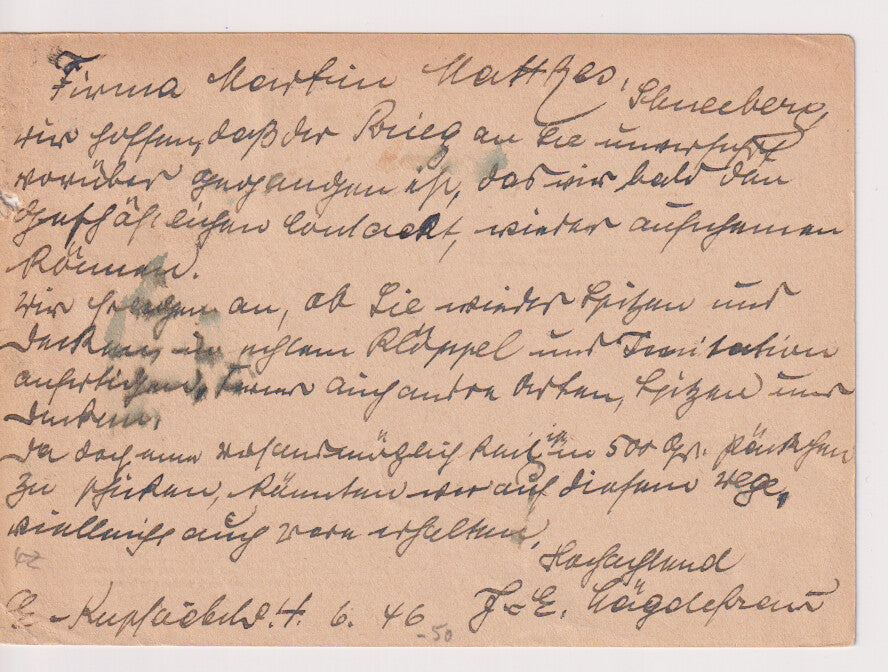 Firma Martin Matthes, Schneeberg,
wir hoffen, daß der Krieg an Sie unversehrt
vorüber gegangen ist, das wir bald den
geschäftlichen Contackt, wieder aufnemen
können.
Wir fragen an, ob Sie wieder Spitzen und
Decken, in echtem Klöppel und Imitation
anfertigen, ferner auch andre Arten, Spitzen und
Decken.
Da doch eine versandmöglichkeit ist in 500 Gr. Päckchen
zu schicken, könnten wir auf diesem Wege,
vielleicht auch Ware erhalten.
Hochachtend
4. 6. 46 F. E. Lägdefrau
-50